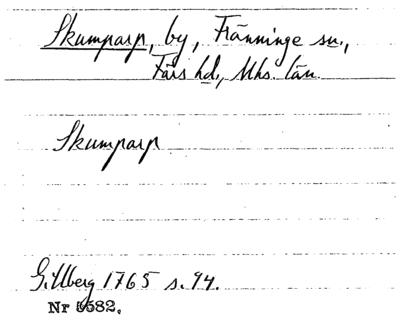 Skumparp, by, Tränninge sn.,
Färs hd., Mhs. län.
Skumparp
Gillberg 1765 s. 94.
Nr 5582.